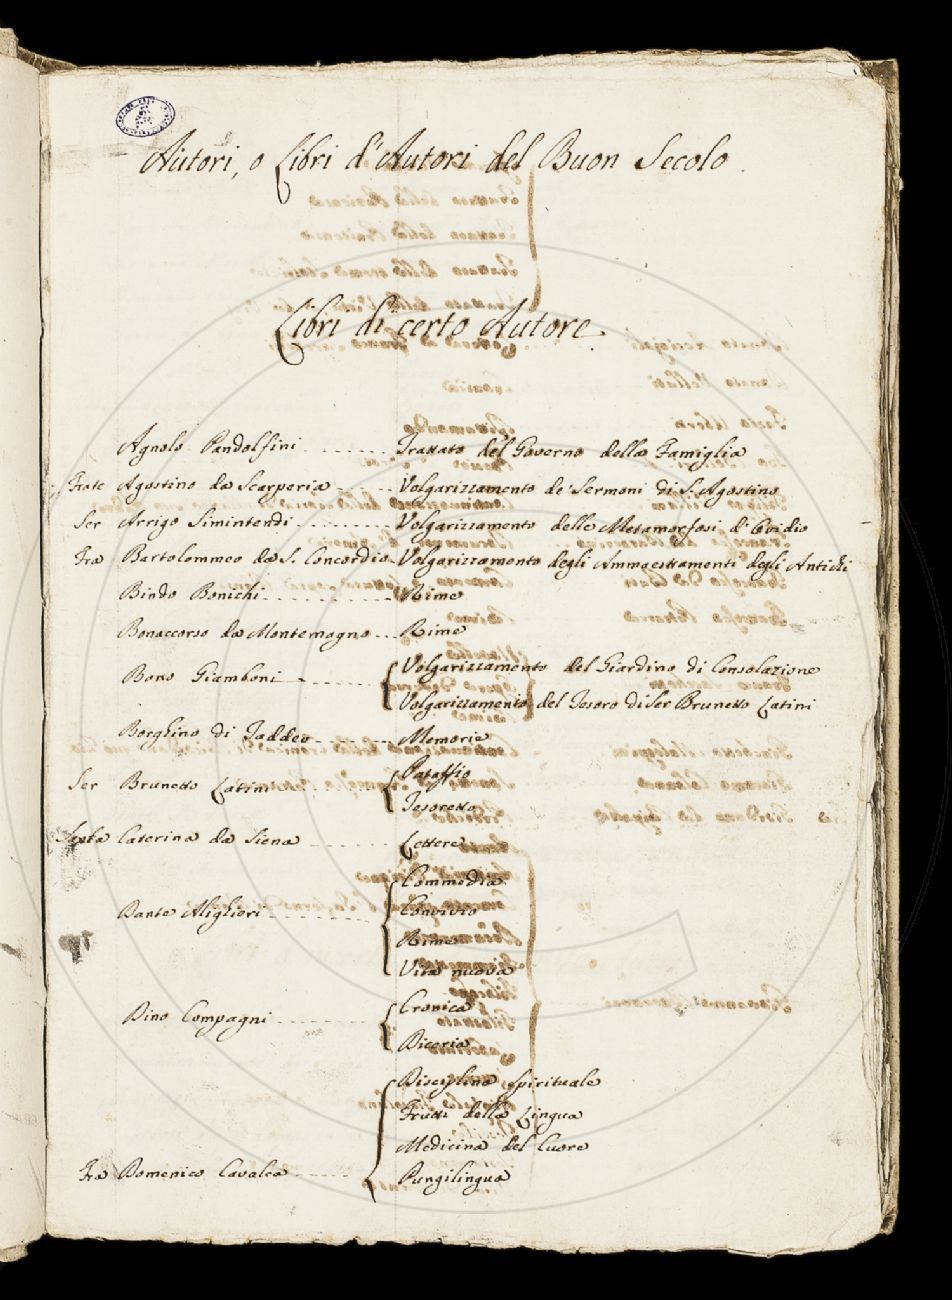 Autori, o Libri d'Autori del Buon Secolo.
Libri di certo Autore.
Agnolo Pandolfini ........ Trattato del Governo della Famiglia
Frate Agostino da Scarperia ..... Volgarizzamento de' Sermoni di S. Agostino
Ser Arrigo Simintendi ........ Volgarizzamento delle Metamorfosi d'Ovidio
Fra Bartolommeo da S. Concordio Volgarizzamento degli Ammaestramenti degli Antichi
Bindo Bonichi ........ Rime
Bonaccorso da Montemagno ... Rime
Bono Giamboni ........ { Volgarizzamento del Giardino di Consolazione
Volgarizzamento del Tesoro di Ser Brunetto Latini
Borghino di Taddeo ........ Memorie
Ser Brunetto Latini ........ { Pataffio
Tesoretto
Santa Caterina da Siena ........ Lettere
Dante Aligliori ........ { Commedia
Convivio
Rime
Vita nuova
Dino Compagni ........ { Cronica
Diceria
{ Disciplina Spirituale
Frutti della Lingua
Medicina del Cuore
Fra Domenico Cavalca ...... Pungilingua